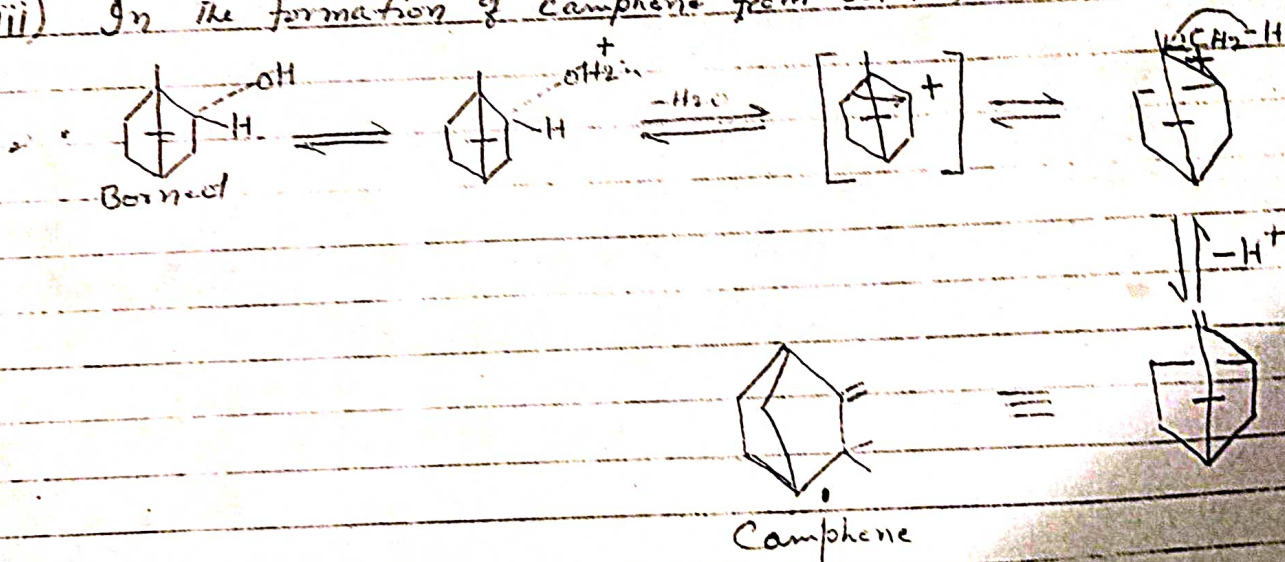 iii) In the formation of camphene from
OH
H
Borneol
+
OH2
H
-H2O
+
CH2-H
+
-H+
Camphene